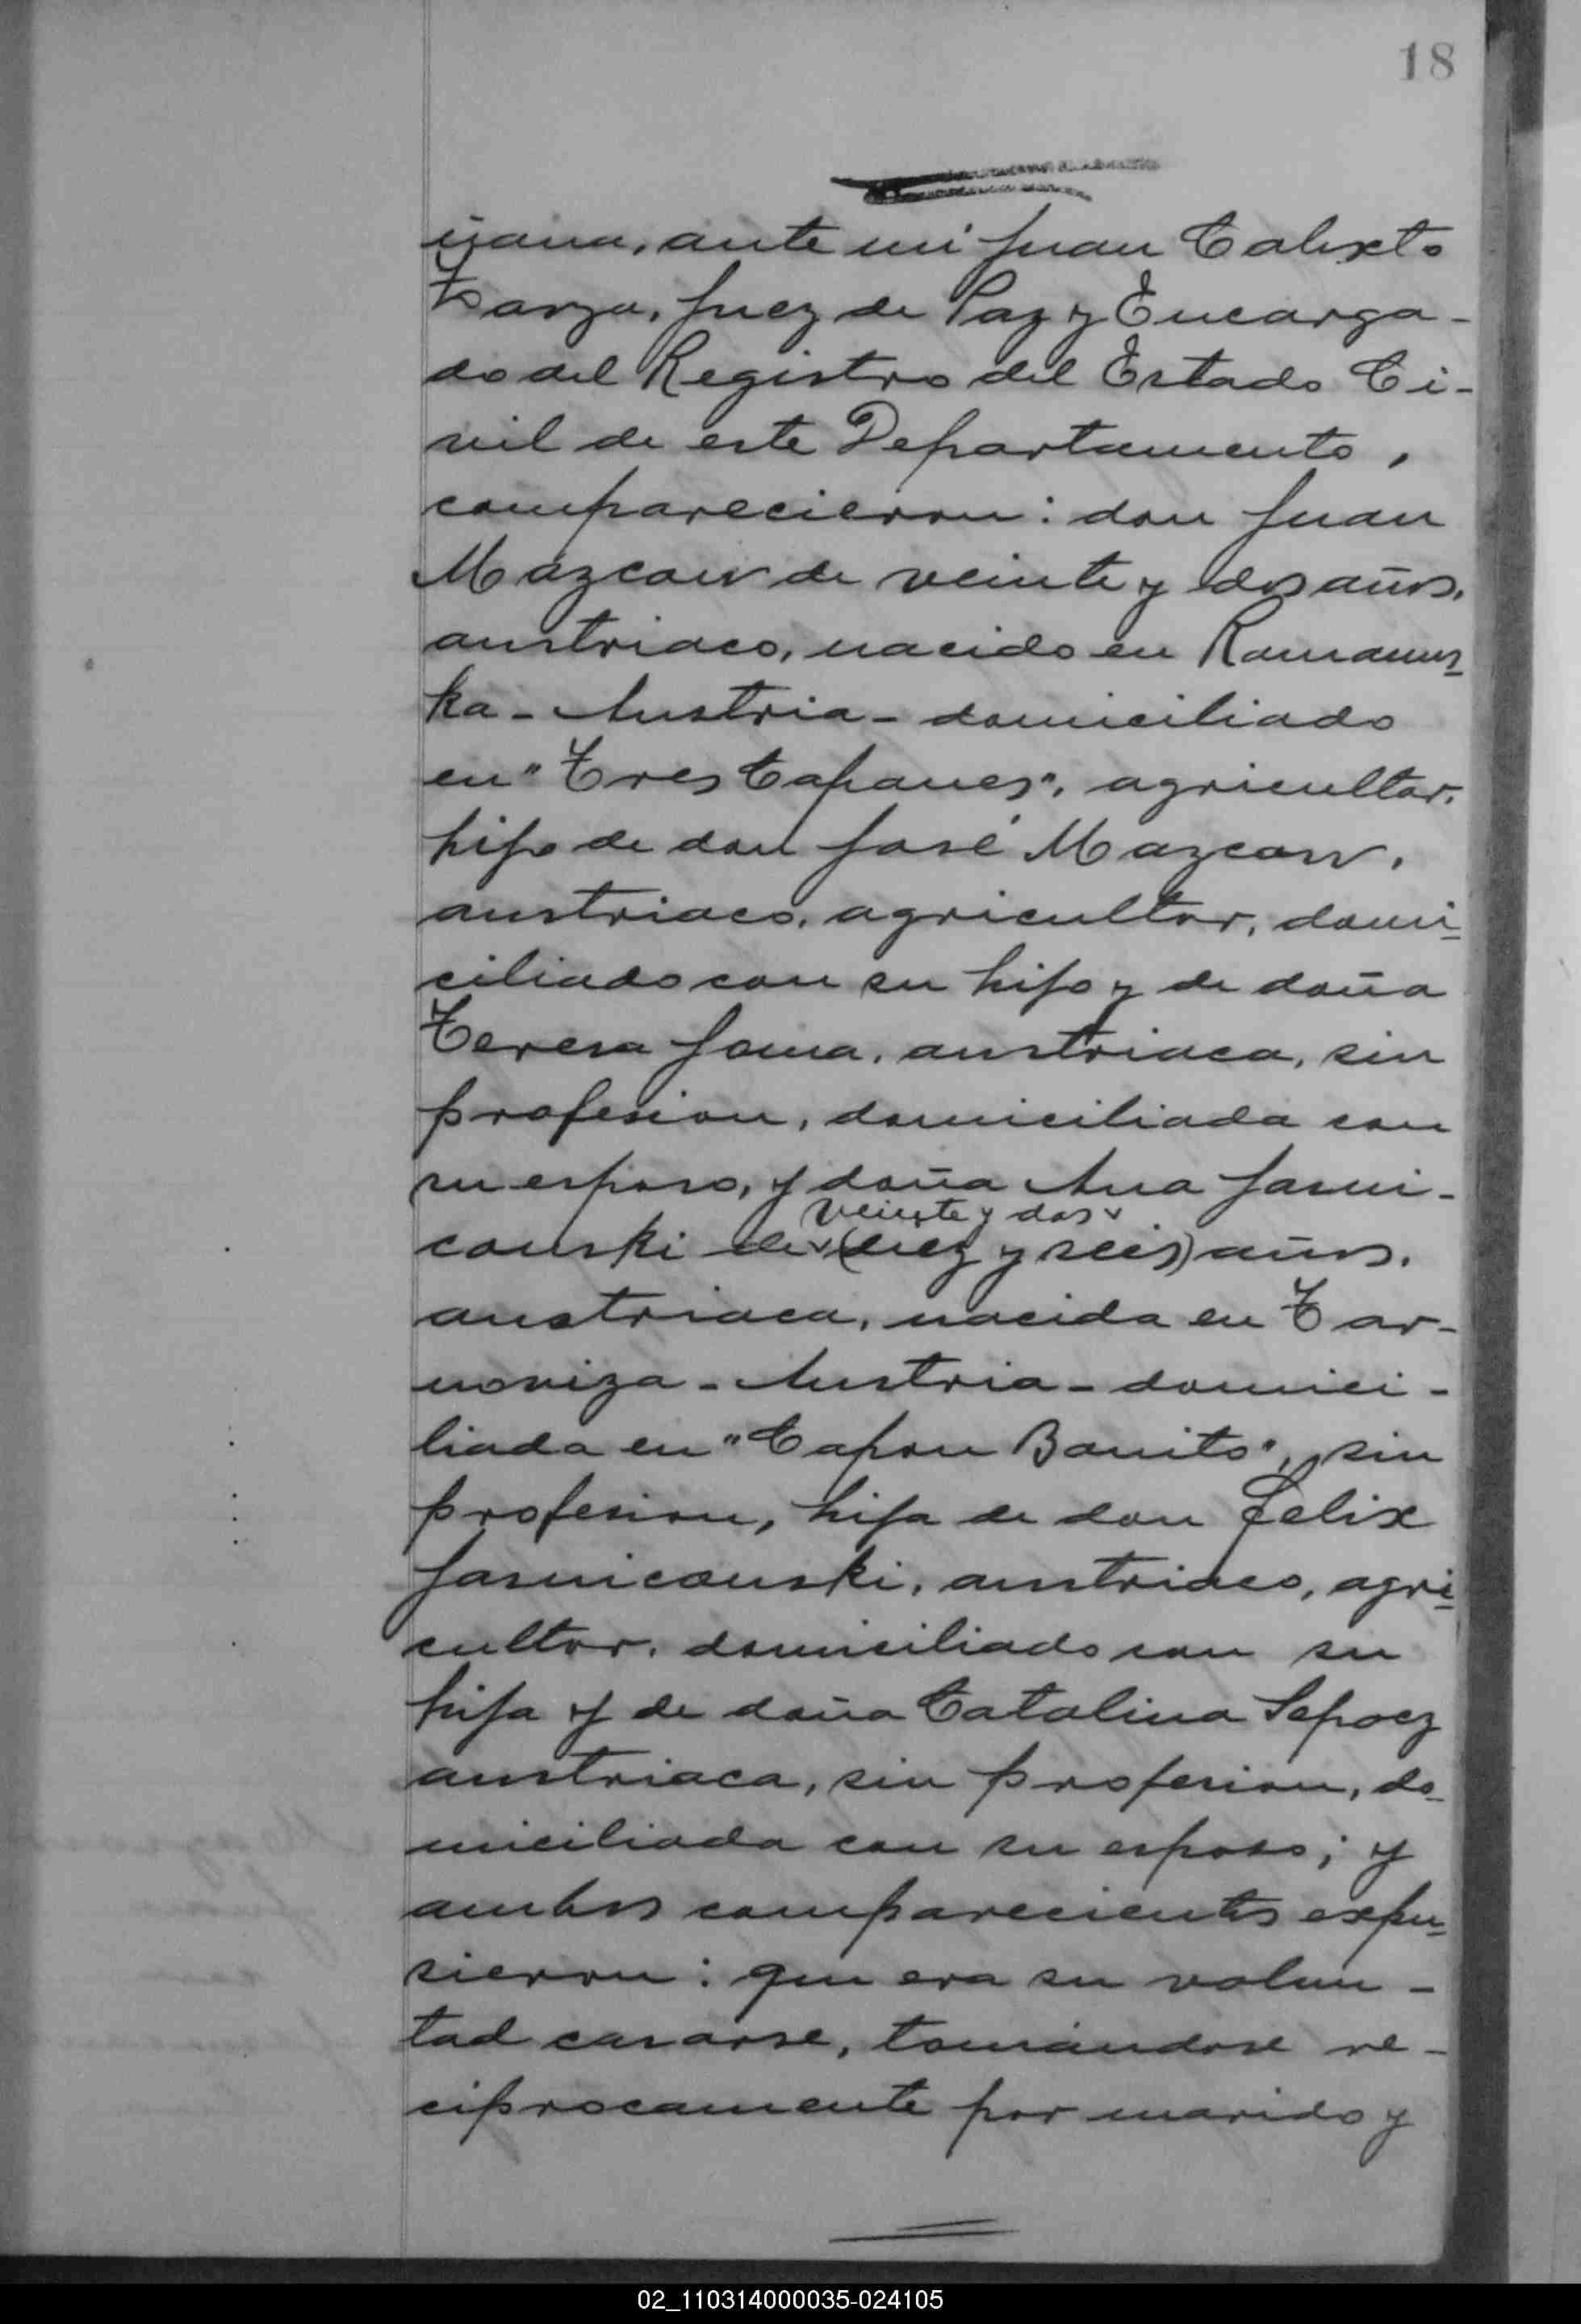 18
ñana, ante mi Juan Calixto
Zarza, Juez de Paz y Encarga-
do del Registro del Estado Ci-
vil de este Departamento,
comparecieron: don Juan
Mazcow de veinte y dos años,
austriaco, nacido en Ramanus-
ka - Austria - domiciliado
en "Tres Capones", agricultor,
hijo de don José Mazcow,
austriaco, agricultor, domi-
ciliado con su hijo y de doña
Teresa Jama, austriaca, sin
profesion, domiciliada con
su esposo, y doña Ana Jasni-
veinte y dos
couski de (diez y seis) años,
austriaca, nacida en Tar-
noviza - Austria - domici-
liada en "Capon Bonito", sin
profesion, hija de don Felix
Jasnicouski, austriaco, agri-
cultor, domiciliado con su
hija y de doña Catalina Sepoez
austriaca, sin profesion, do-
miciliada con su esposo; y
ambos comparecientes expu-
sieron: que era su volun-
tad casarse, tomándose re-
ciprocamente por marido y
02_110314000035-024105